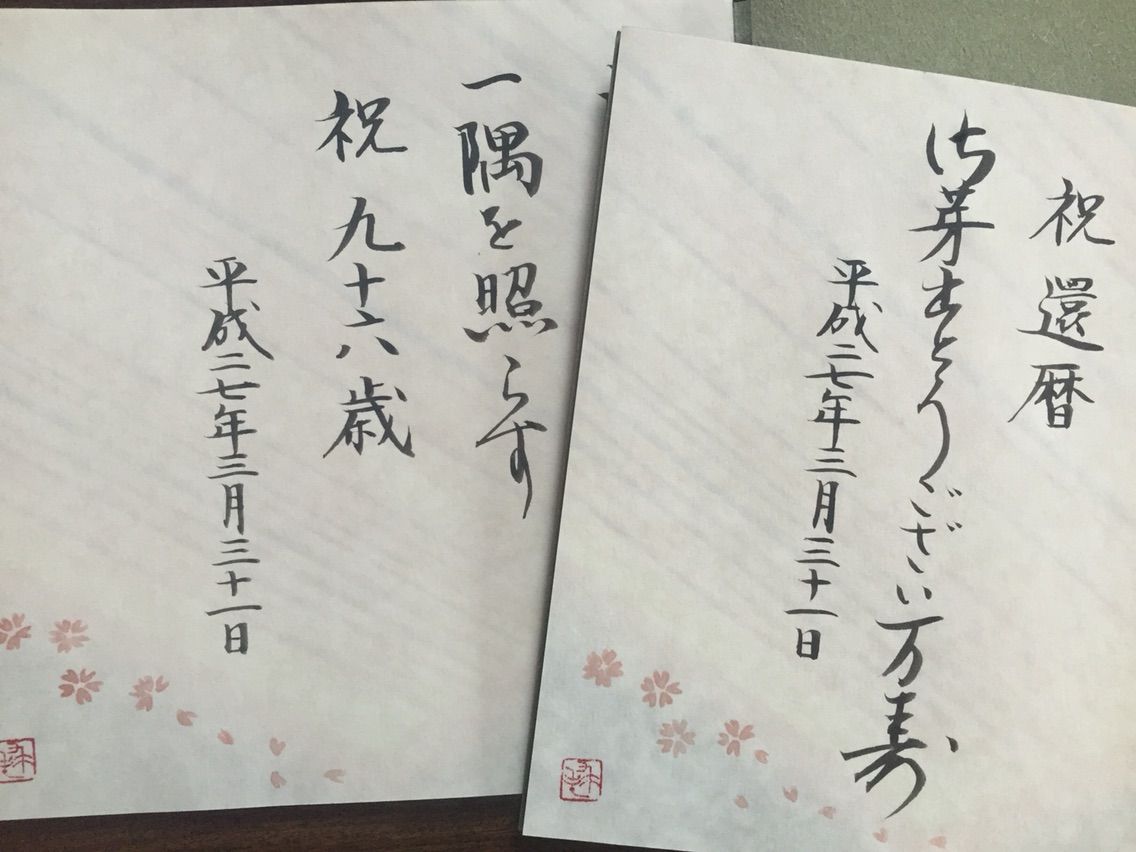 祝 還暦
御芽出とうござい万寿
平成二七年三月三十一日
一隅を照らす
祝 九十六歳
平成二七年三月三十一日